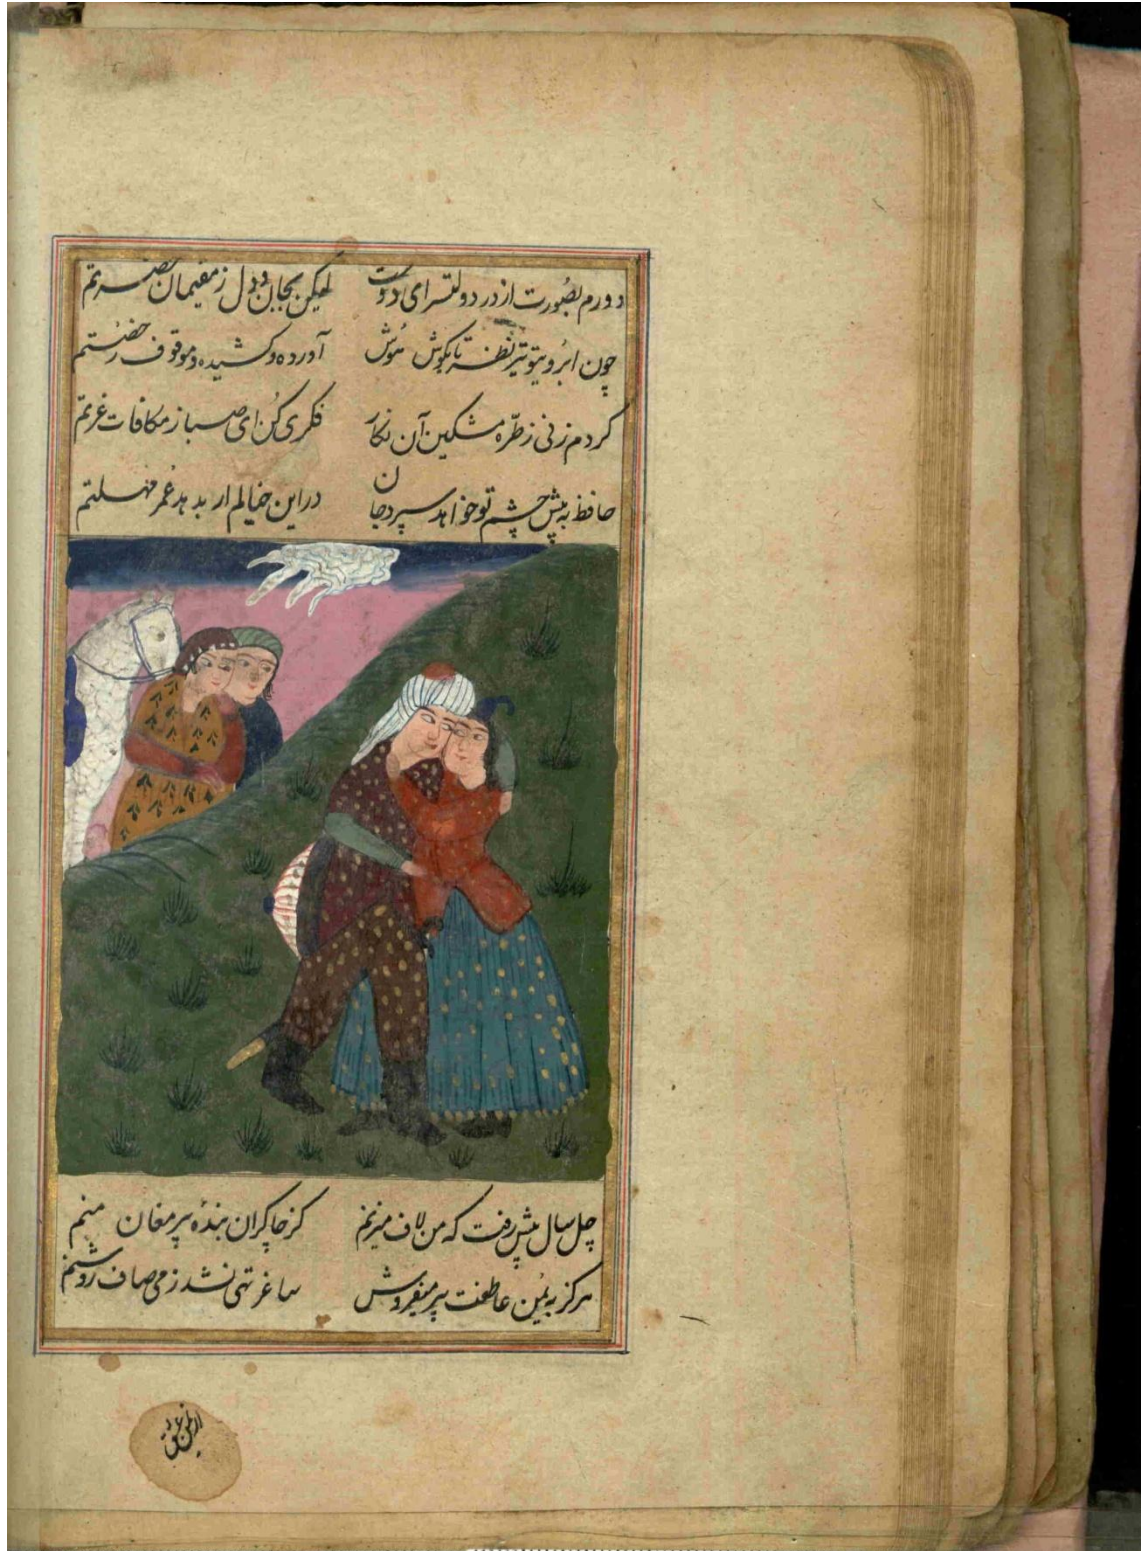 دورم بصورت از در دولتسرای دوست لیکن بجان و دل ز مقیمان حضرتم
چون ابروی تو تیر نظر تا بگوش هوش آورده و کشیده و موقوف رخصتم
کردم زنی ز طره مشکین آن نکار فکری کن ای صبا ز مکافات غرتم
حافظ به پیش چشم تو خواهد سپرد جان در این خیالم ار بدهد عمر مهلتم
چل سال پیش رفت که من لاف میزنم کز چاکران بندهٔ پیر مغان منم
هرکز به یُمن عاطفت پیر میفروش ساغر تهی نشد ز می صاف روشنم